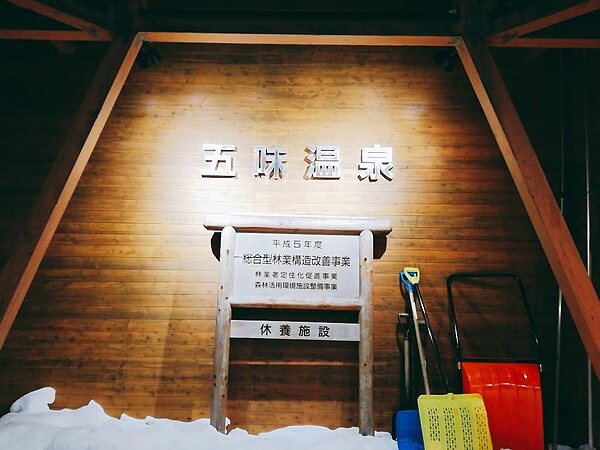 五味温泉
平成5年度
総合型林業構造改善事業
林業者定住化促進事業
森林活用環境施設整備事業
休養施設